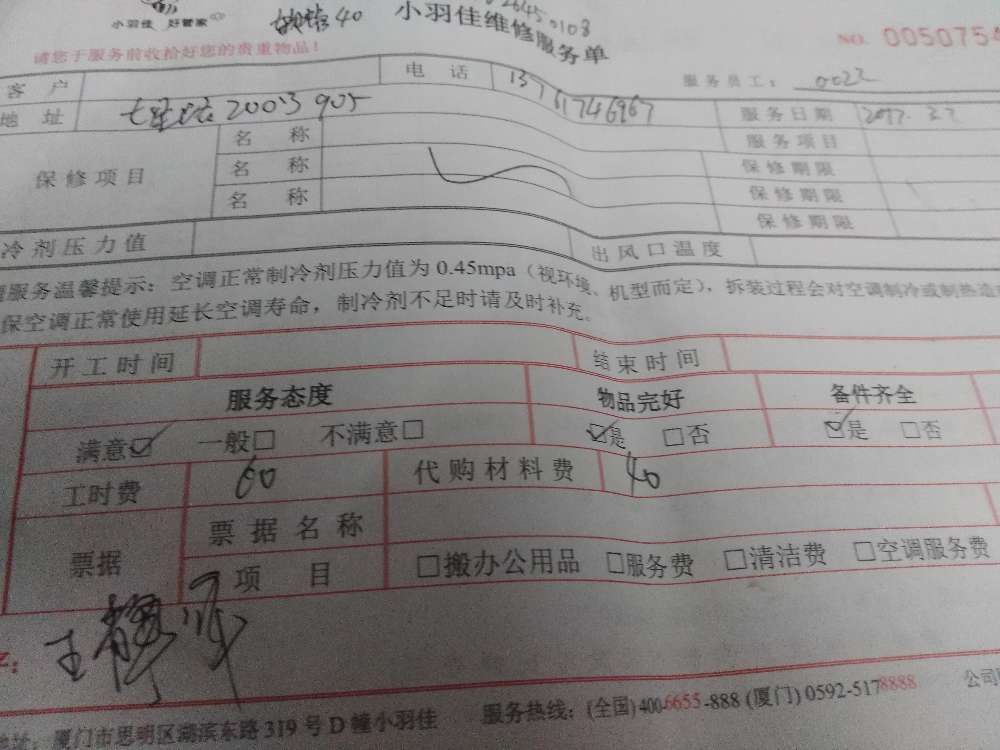 小羽佳 好管家
40
小羽佳维修服务单
NO. 0050754
请您于服务前收拾好您的贵重物品！
服务员工： 0022
客户 电话 13761746967
地址 2003 905 服务日期
保修项目 名称 服务项目
名称 保修期限
名称 保修期限
保修期限
冷剂压力值 出风口温度
服务温馨提示：空调正常制冷剂压力值为 0.45mpa（视环境、机型而定），拆装过程会对空调制冷或制热造
保空调正常使用延长空调寿命，制冷剂不足时请及时补充。
开工时间 结束时间
服务态度 物品完好 备件齐全
满意☑ 一般□ 不满意□ ☑是 □否 ☑是 □否
工时费 60 代购材料费 40
票据 票据名称
项目 □搬办公用品 □服务费 □清洁费 □空调服务费
王
地址：厦门市思明区湖滨东路 319 号 D 幢小羽佳 服务热线：(全国) 400-6655-888 (厦门) 0592-5178888 公司